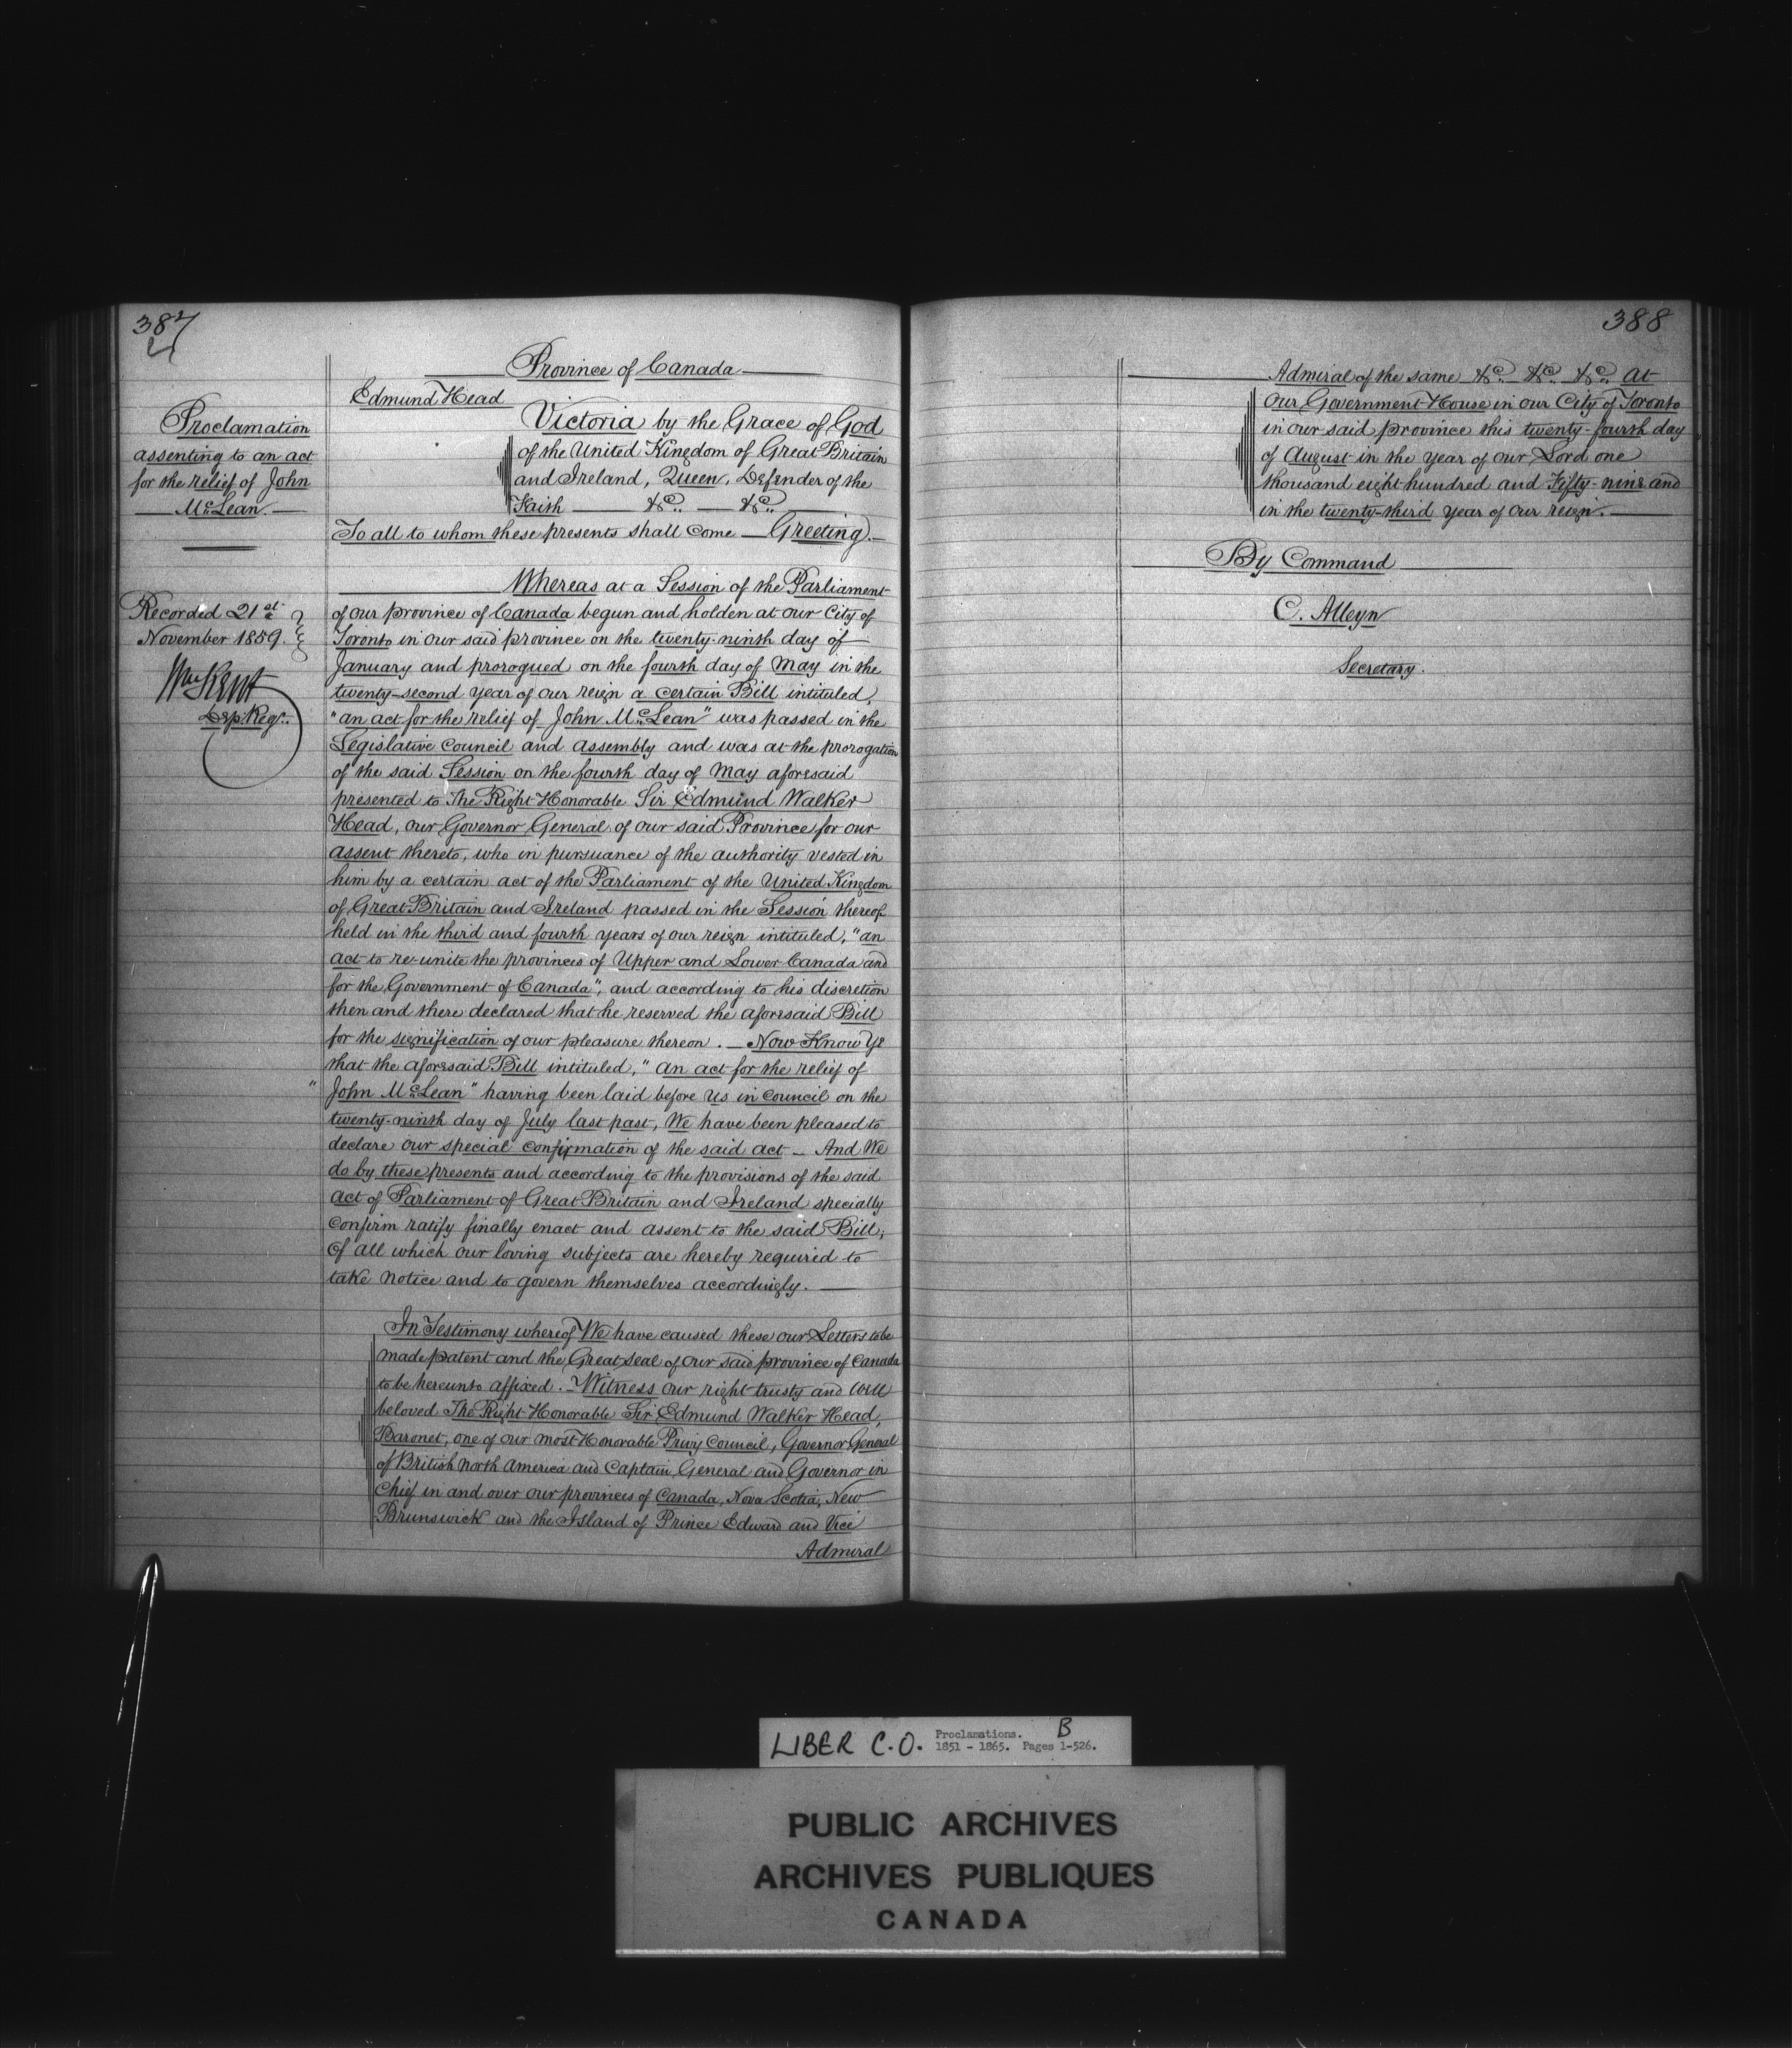 387
Province of Canada
Edmund Head
Proclamation
assenting to an act
for the relief of John
McLean.
Recorded 21st
November 1859.
Wm Kent
Dep. Regr.
Victoria by the Grace of God
of the United Kingdom of Great Britain
and Ireland, Queen, Defender of the
Faith &c. &c.
To all to whom these presents shall come Greeting.
Whereas at a Session of the Parliament
of our province of Canada begun and holden at our City of
Toronto in our said province on the twenty-ninth day of
January and prorogued on the fourth day of May in the
twenty-second year of our reign a certain Bill intituled,
"an act for the relief of John McLean" was passed in the
Legislative Council and Assembly and was at the prorogation
of the said Session on the fourth day of May aforesaid
presented to The Right Honorable Sir Edmund Walker
Head, our Governor General of our said Province for our
assent thereto, who in pursuance of the authority vested in
him by a certain act of the Parliament of the United Kingdom
of Great Britain and Ireland passed in the Session thereof
held in the third and fourth years of our reign intituled, "an
act to re-unite the provinces of Upper and Lower Canada and
for the Government of Canada", and according to his discretion
then and there declared that he reserved the aforesaid Bill
for the signification of our pleasure thereon. — Now Know Ye
that the aforesaid Bill intituled, "an act for the relief of
" John McLean" having been laid before Us in Council on the
twenty-ninth day of July last past, We have been pleased to
declare our special confirmation of the said act — And We
do by these presents and according to the provisions of the said
act of Parliament of Great Britain and Ireland specially
confirm ratify finally enact and assent to the said Bill;
Of all which our loving subjects are hereby required to
take notice and to govern themselves accordingly.
In Testimony whereof We have caused these our Letters to be
made patent and the Great Seal of our said province of Canada
to be hereunto affixed. Witness our right trusty and well
beloved The Right Honorable Sir Edmund Walker Head,
Baronet, one of our most Honorable Privy Council, Governor General
of British North America and Captain General and Governor in
Chief in and over our provinces of Canada, Nova Scotia, New
Brunswick and the Island of Prince Edward and Vice
Admiral
388
Admiral of the same &c. &c. &c. at
our Government House in our City of Toronto
in our said province this twenty-fourth day
of August in the year of our Lord one
thousand eight hundred and Fifty-nine and
in the twenty-third year of our reign.
By Command
C. Alleyn
Secretary.
LIBER C.O. Proclamations. B
1851 - 1865. Pages 1-526.
PUBLIC ARCHIVES
ARCHIVES PUBLIQUES
CANADA